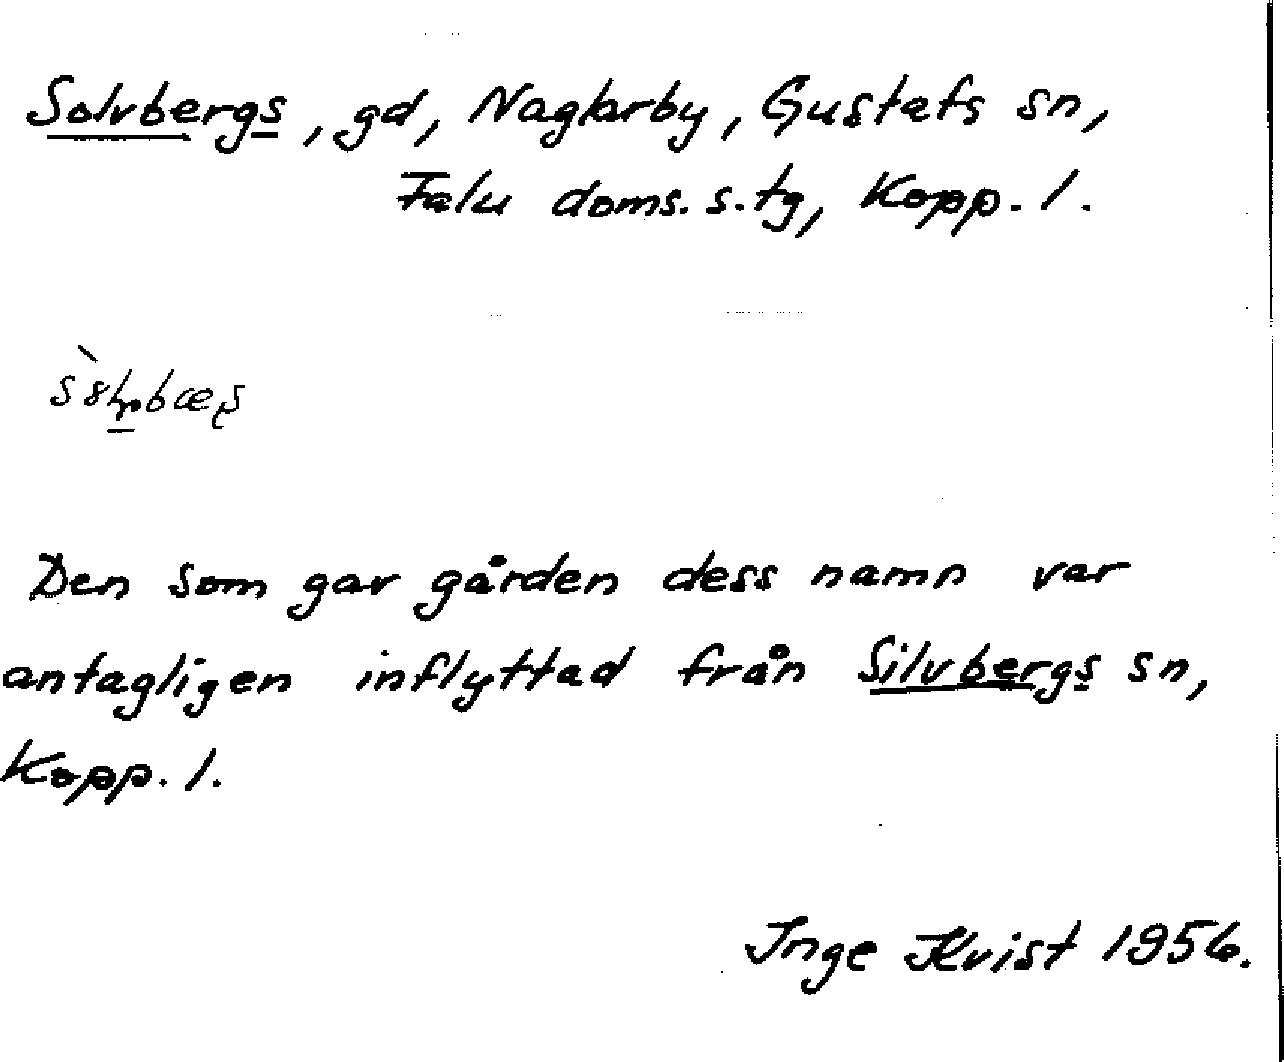 Solvbergs, gd, Naglarby, Gustafs sn,
Falu doms. s. tg, Kopp. l.
Den som gav gården dess namn var
antagligen inflyttad från Silvbergs sn,
Kopp. l.
Inge Kvist 1956.